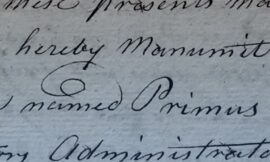 these presents ma
hereby Manumit
named Primus
ors Administrato